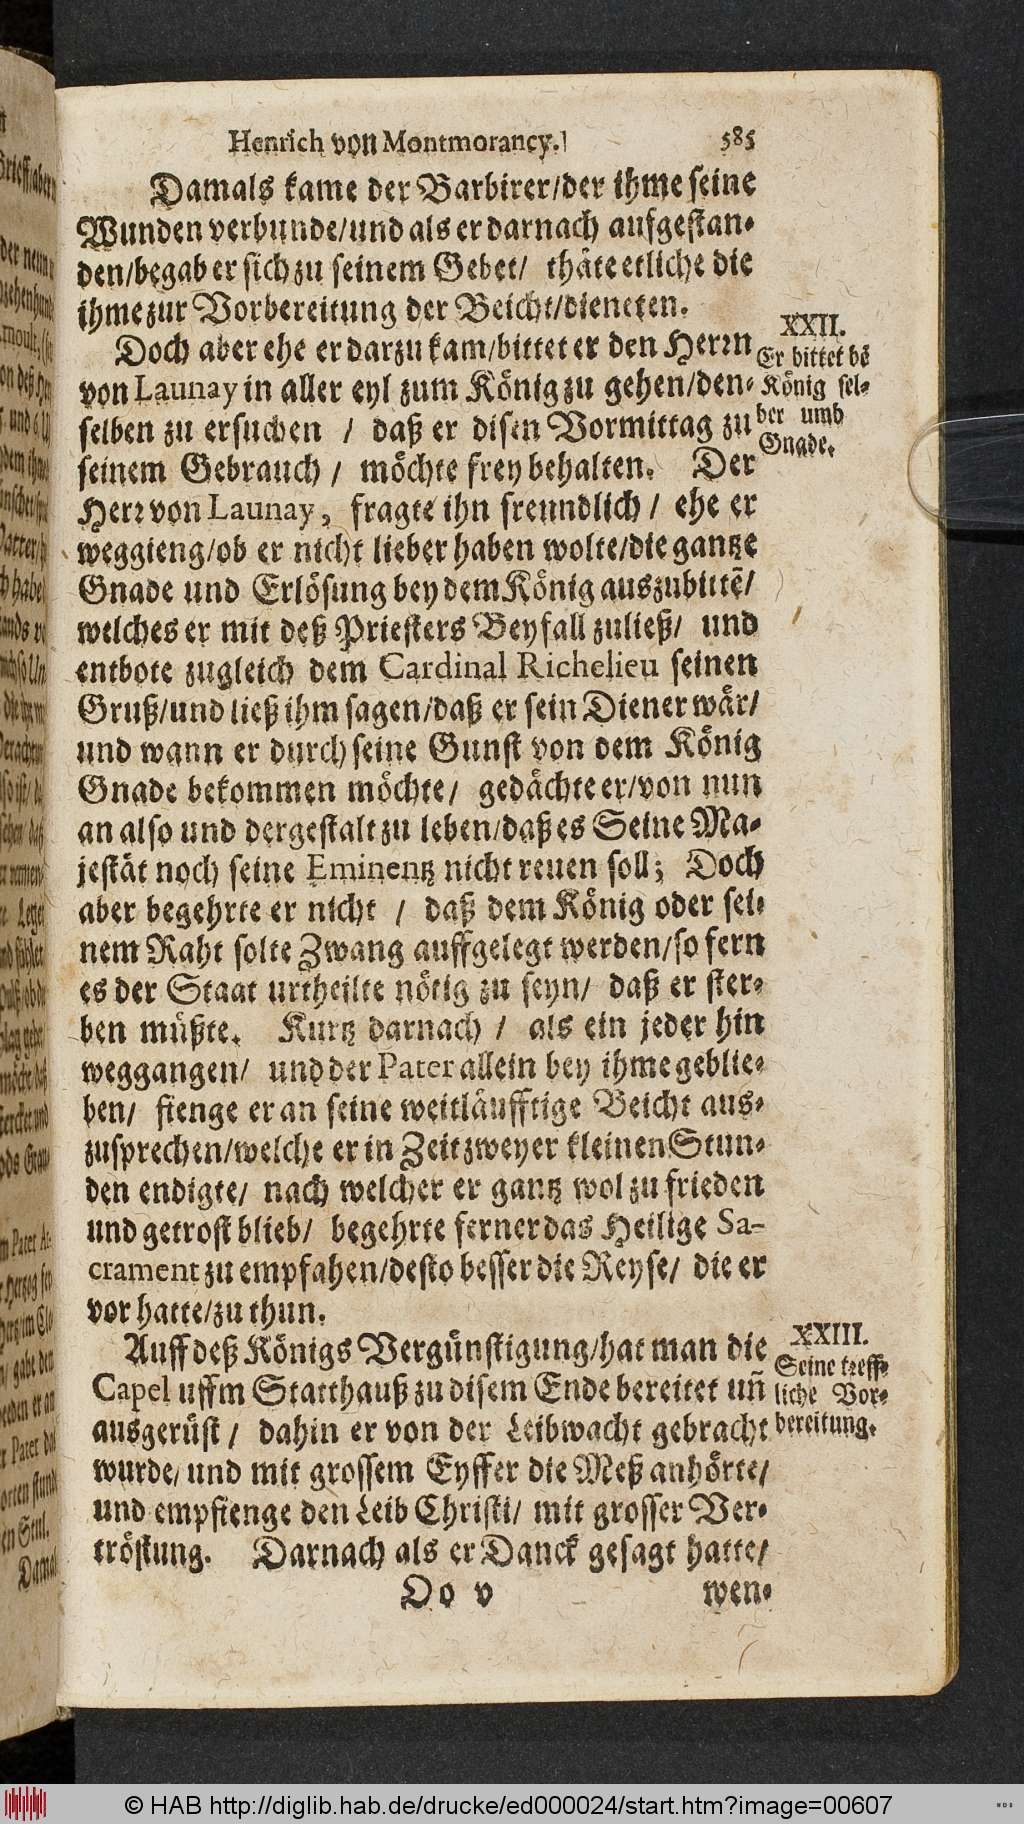 Henrich von Montmorancy. 585
Damals kame der Barbirer/der ihme seine
Wunden verbunde/und als er darnach aufgestan-
den/begab er sich zu seinem Gebet/ thäte etliche die
ihme zur Vorbereitung der Beicht/dieneten.
XXII.
Er bittet dē
König sel-
ber umb
Gnade.
Doch aber ehe er darzu kam/bittet er den Herrn
von Launay in aller eyl zum König zu gehen/den-
selben zu ersuchen / daß er disen Vormittag zu
seinem Gebrauch / möchte frey behalten. Der
Herr von Launay, fragte ihn freundlich / ehe er
weggieng/ob er nicht lieber haben wolte/die gantze
Gnade und Erlösung bey dem König auszubittē/
welches er mit deß Priesters Beyfall zuließ/ und
entbote zugleich dem Cardinal Richelieu seinen
Gruß/und ließ ihm sagen/daß er sein Diener wär/
und wann er durch seine Gunst von dem König
Gnade bekommen möchte/ gedächte er/von nun
an also und dergestalt zu leben/daß es Seine Ma-
jestät noch seine Eminentz nicht reuen soll; Doch
aber begehrte er nicht / daß dem König oder sei-
nem Raht solte Zwang auffgelegt werden/so fern
es der Staat urtheilte nötig zu seyn/ daß er ster-
ben müßte. Kurtz darnach / als ein jeder hin
weggangen/ und der Pater allein bey ihme geblie-
ben/ fienge er an seine weitläufftige Beicht aus-
zusprechen/welche er in Zeit zweyer kleinen Stun-
den endigte/ nach welcher er gantz wol zu frieden
und getrost blieb/ begehrte ferner das Heilige Sa-
crament zu empfahen/desto besser die Reyse/ die er
vor hatte/zu thun.
XXIII.
Seine treff-
liche Vor-
bereitung.
Auff deß Königs Vergünstigung/hat man die
Capel uffm Statthauß zu disem Ende bereitet uñ
ausgerüst / dahin er von der Leibwacht gebracht
wurde/ und mit grossem Eyffer die Meß anhörte/
und empfienge den Leib Christi/ mit grosser Ver-
tröstung. Darnach als er Danck gesagt hatte/
Oo v wen-
© HAB http://diglib.hab.de/drucke/ed000024/start.htm?image=00607